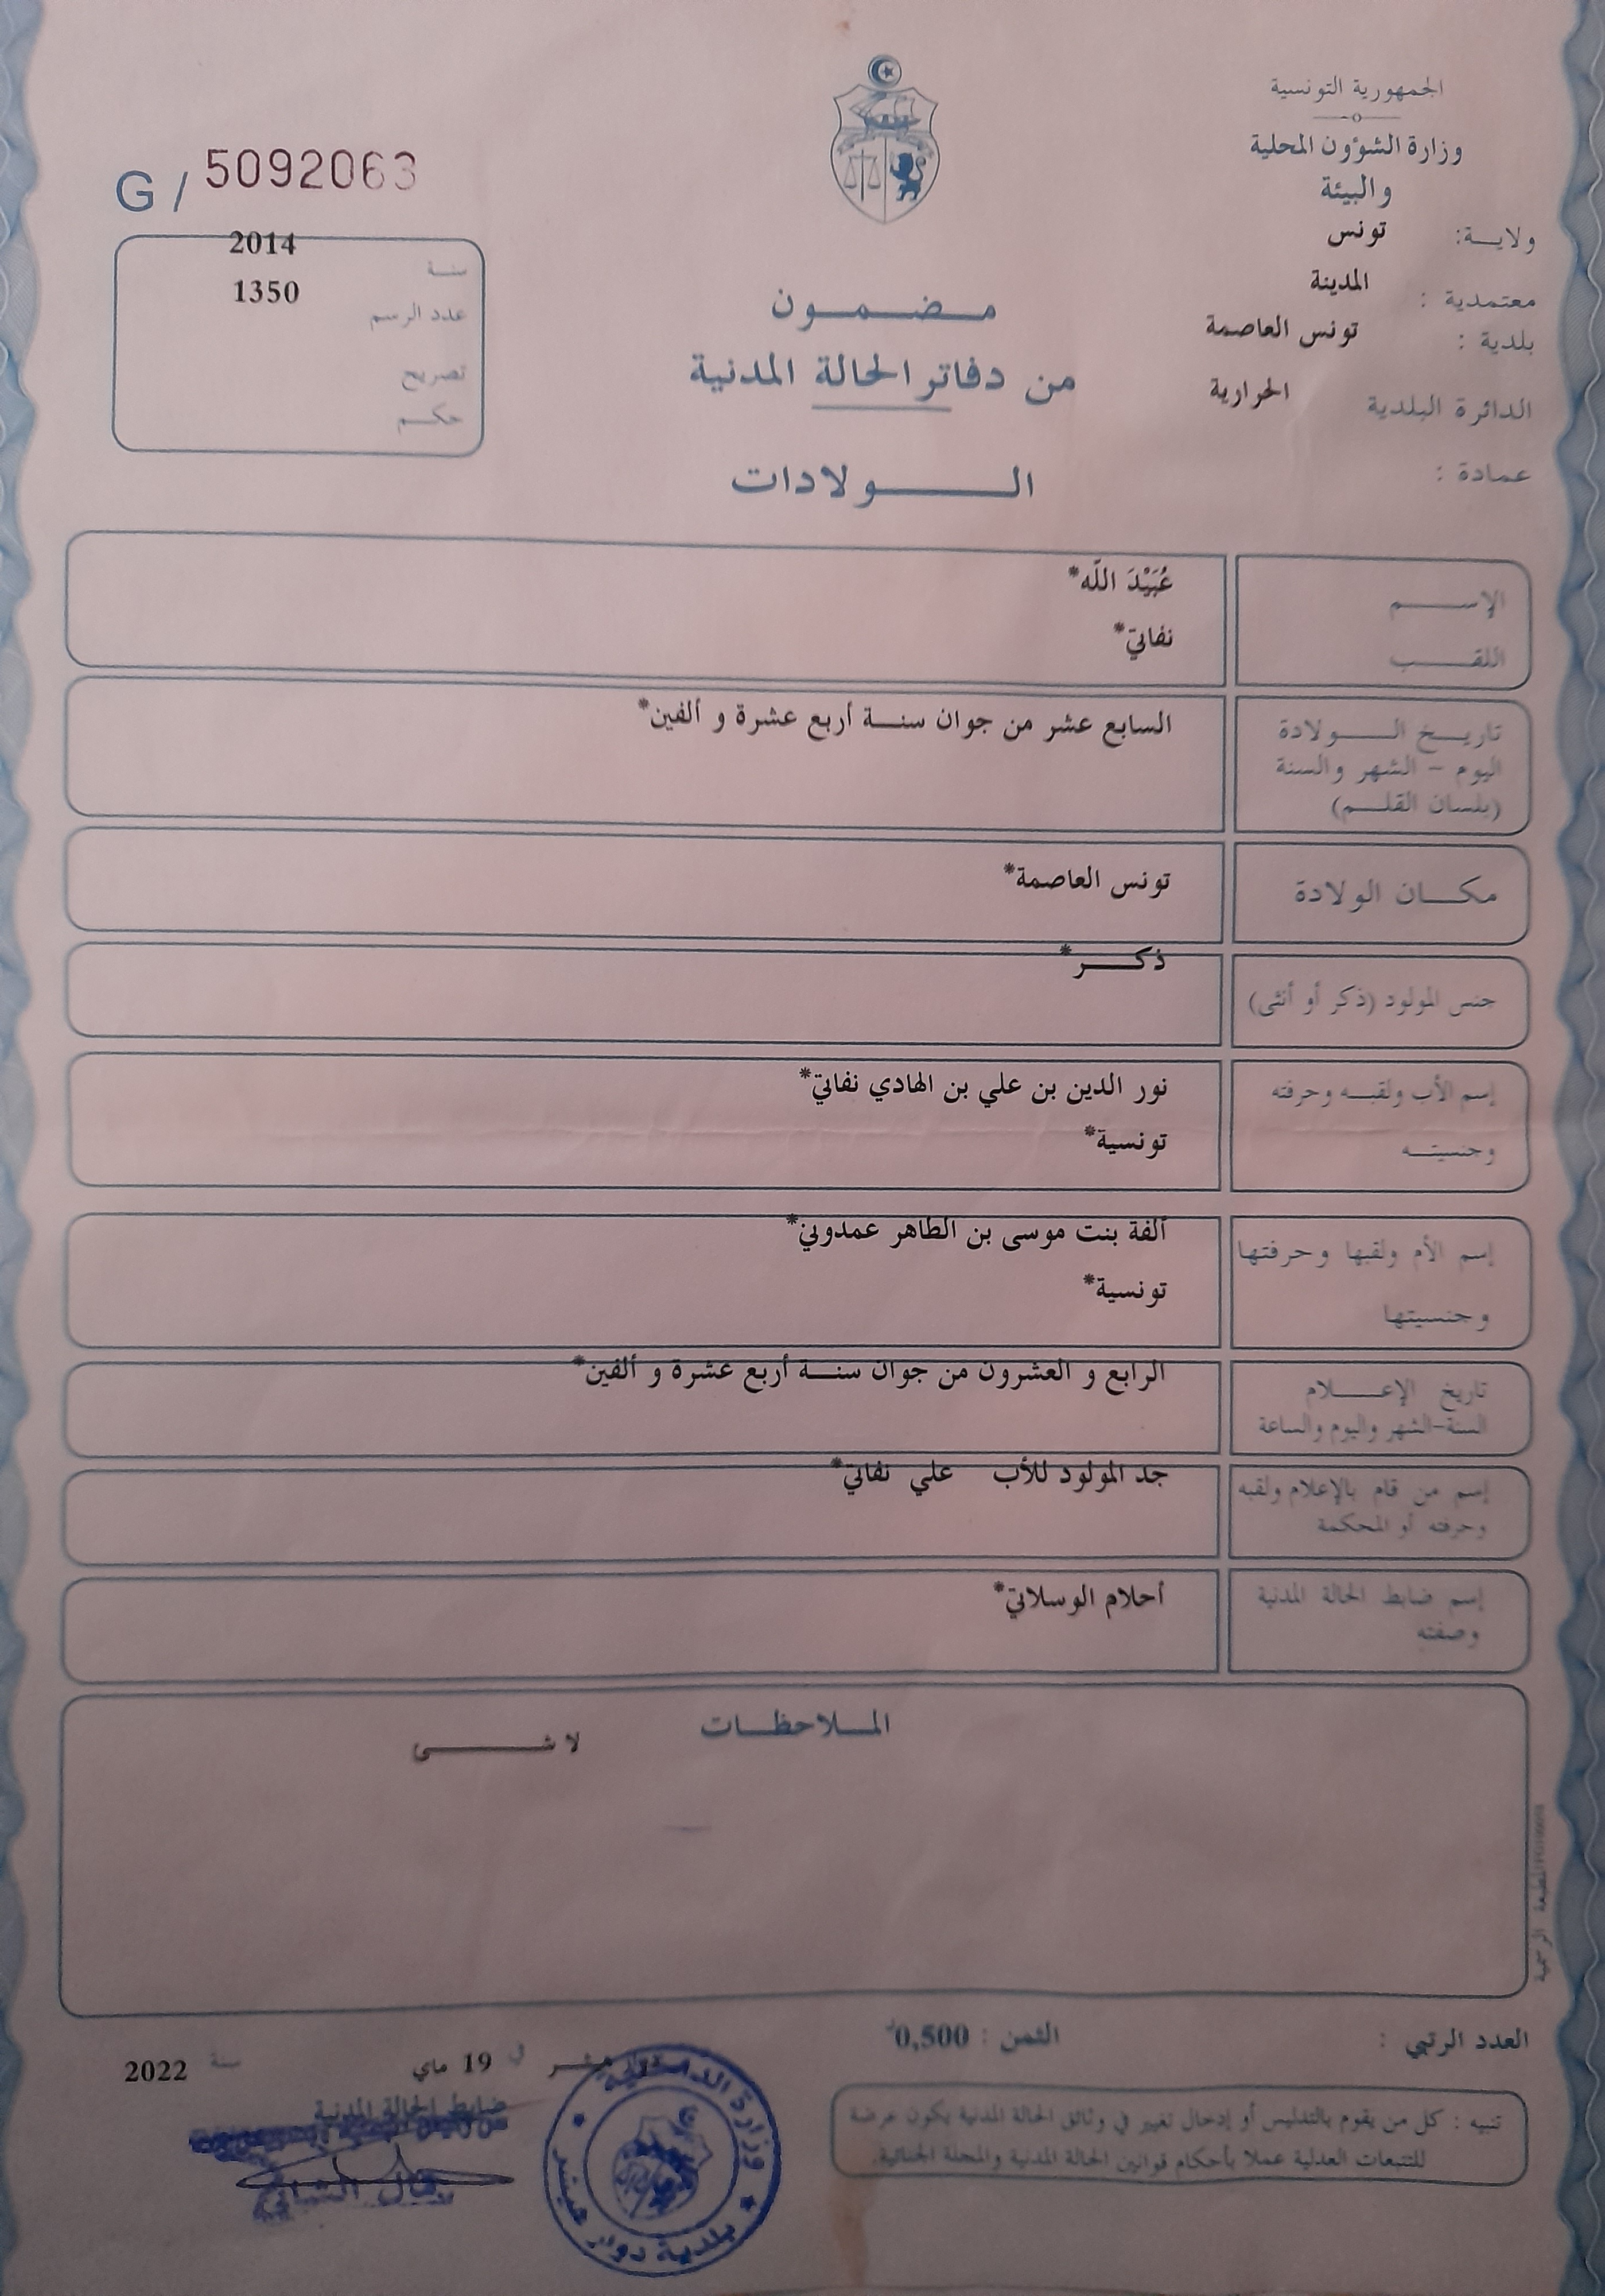 الجمهورية التونسية
وزارة الشؤون المحلية
والبيئة
ولايـــة: تونس
معتمدية : المدينة
بلدية : تونس العاصمة
الدائرة البلدية الحرارية
عمادة :
G / 5092063
سنـــة 2014
عدد الرسم 1350
تصريح
حكـــم
مـــضـــمـــون
من دفاتر الحالة المدنية
الـــــولادات
الإســـــم عُبَيْدَ اللّه*
اللقـــــب نفاتي*
تاريـــخ الـــــولادة السابع عشر من جوان سنـــة أربع عشرة و ألفين*
اليوم – الشهر والسنة
(بلسان القلـــم)
مكـــان الولادة تونس العاصمة*
جنس المولود (ذكر أو أنثى) ذكـــر*
إسم الأب ولقبـــه وحرفته نور الدين بن علي بن الهادي نفاتي*
وجنسيتـــه تونسية*
إسم الأم ولقبها وحرفتها ألفة بنت موسى بن الطاهر عمدوني*
وجنسيتها تونسية*
تاريخ الإعـــــلام الرابع و العشرون من جوان سنـــة أربع عشرة و ألفين*
السنة-الشهر واليوم والساعة
إسم من قام بالإعلام ولقبه جد المولود للأب علي نفاتي*
وحرفته أو المحكمة
إسم ضابط الحالة المدنية أحلام الوسلاتي*
وصفته
المـــلاحظـــات
لا شـــــئ
المطبعة الرسمية
العدد الرتبي :
الثمن : 0,500د
في 19 ماي سنـــة 2022
ضابط الحالة المدنية
وزارة الداخلية
بلدية دوار هيشر
تنبيه : كل من يقوم بالتدليس أو إدخال تغيير في وثائق الحالة المدنية يكون عرضة
للتتبعات العدلية عملا بأحكام قوانين الحالة المدنية والمجلة الجنائية.